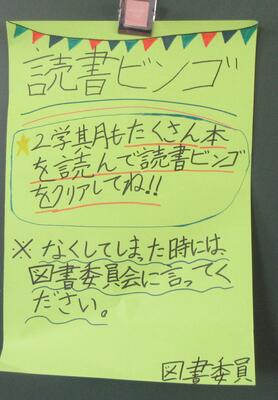 読書ビンゴ
2学期もたくさん本
を読んで読書ビンゴ
をクリアしてね!!
※なくしてしまった時には、
図書委員会に言ってく
ださい。
図書委員